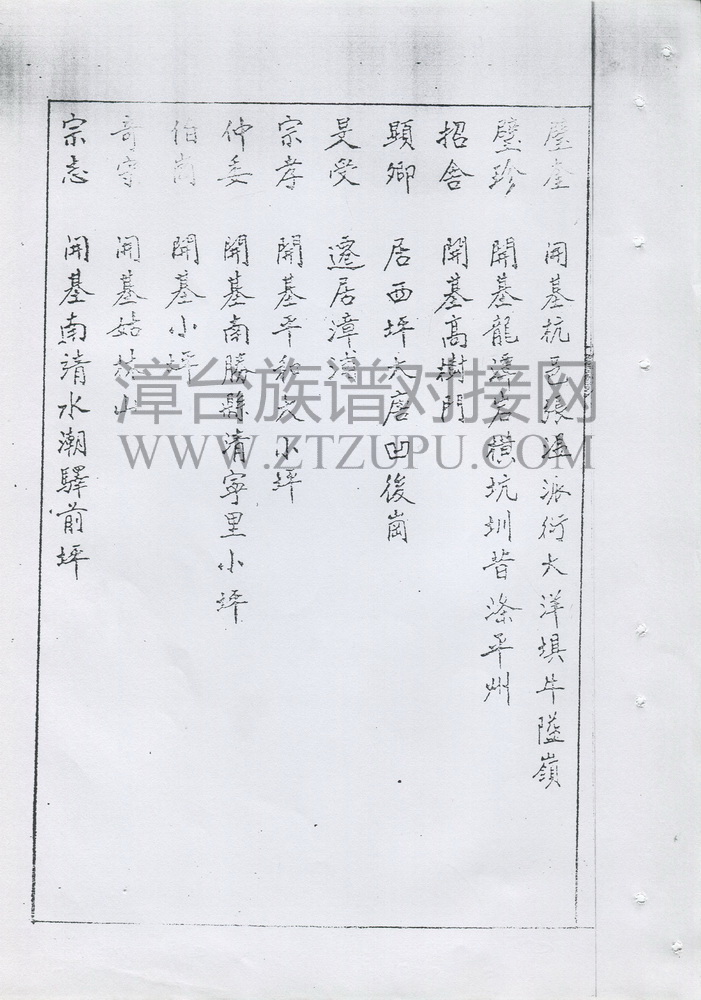 璧奎 開基杭邑張溫派衍大洋埧牛隘嶺
璧珍 開基龍潭岩橫坑圳背滌平州
招舍 開基高樹門
顯卿 居西坪大唐凹後崗
旻受 遷居漳浦
宗孝 開基平和大小坪
仲委 開基南勝縣清寧里小坪
伯崗 開基小坪
奇守 開基姑林山
宗志 開基南靖水潮驛前坪
漳台族谱对接网
WWW.ZTZUPU.COM